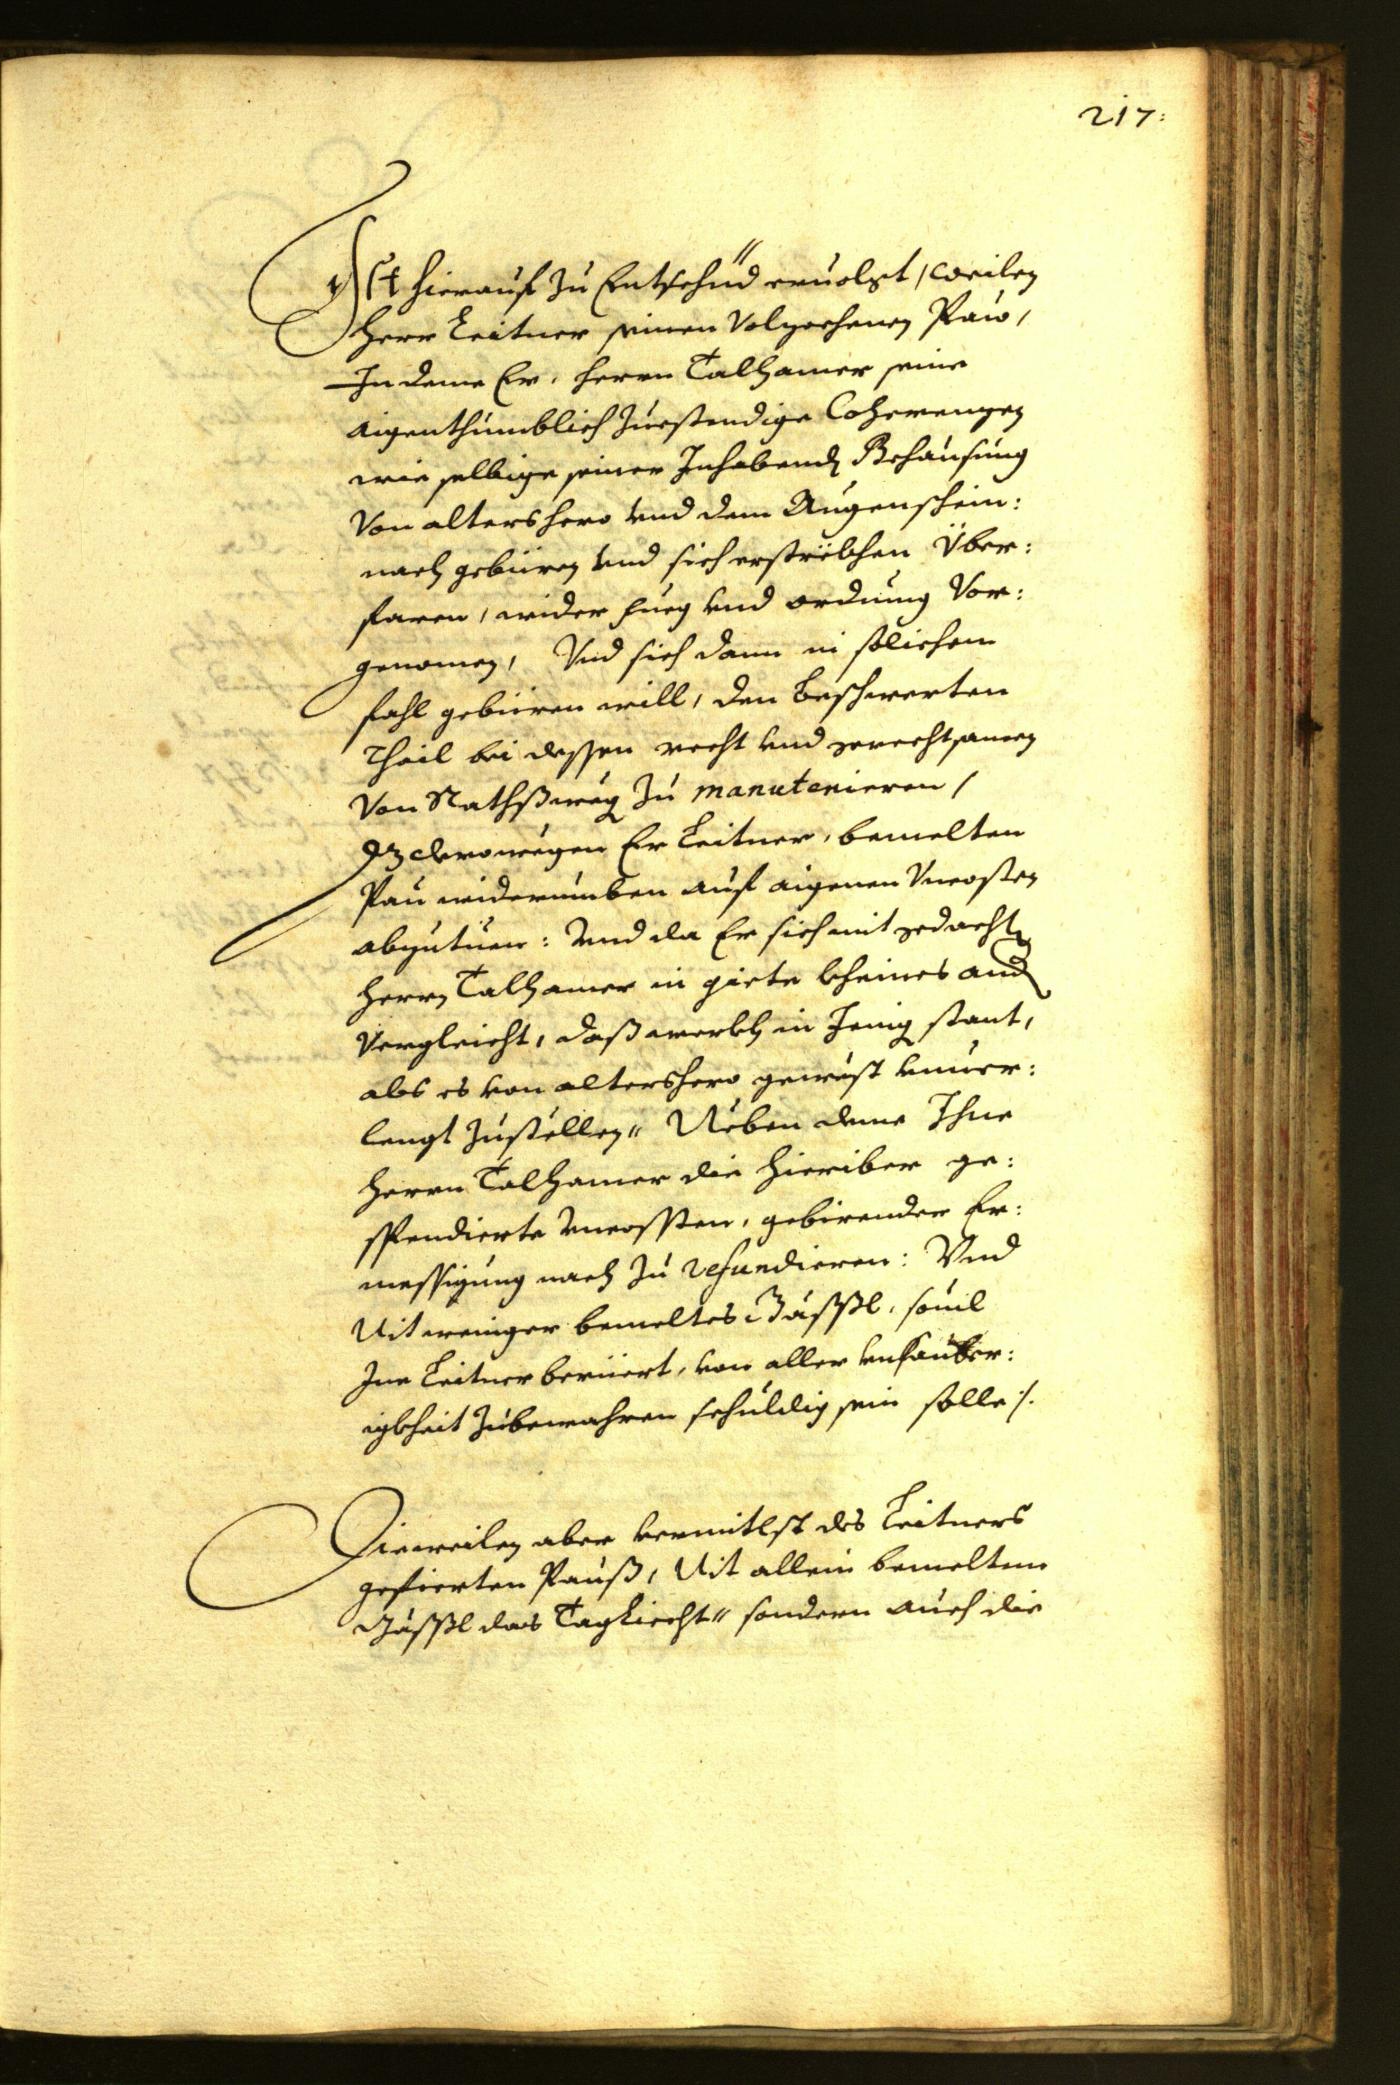 217:
Ist hierauf zu Entschid ervolgt, weilen
Herr Leitner seinen Volzochenen Paw,
In deme Er, herrn Talhamer seine
aigenthumblich zuestendige Coherenzen
wie selbige seiner Inhabend Behausung
Von altershero vnd dem Augenschein:
nach gebüren vnd sich erströkhen Über:
faren, wider fueg vnd ordnung Vor:
genomen, Vnd sich dann in solichem
fahl gebüren will, den beschwerten
Theil bei dessen recht vnd gerechtsamen
Von Rathsweg zu manutenieren,
Dz derowegen Er Leitner, bemelten
Pau widerumben auf aigenen Vncosten
abzutuen: Vnd da Er sich mit gedacht
Herrn Talhamer in giete kheines and
Vergleicht, das werkh in Jenig stant,
als es von altershero gewest vnuer:
lengt zustellen, Neben deme Ihne
Herrn Talhamer die hieriber ge:
spendierte Vncossten, gebirender Er:
messigung nach zu refundieren: Vnd
Nit weniger bemeltes Gässl, souil
Ine Leitner beriert, von aller vnsauber:
igkheit zubewahren schuldig sein solle ./.
Dieweilen aber vermitlst des Leitners
gefierten Pauß, Nit allein bemeltem
Gässl das Tagliecht, sondern auch die